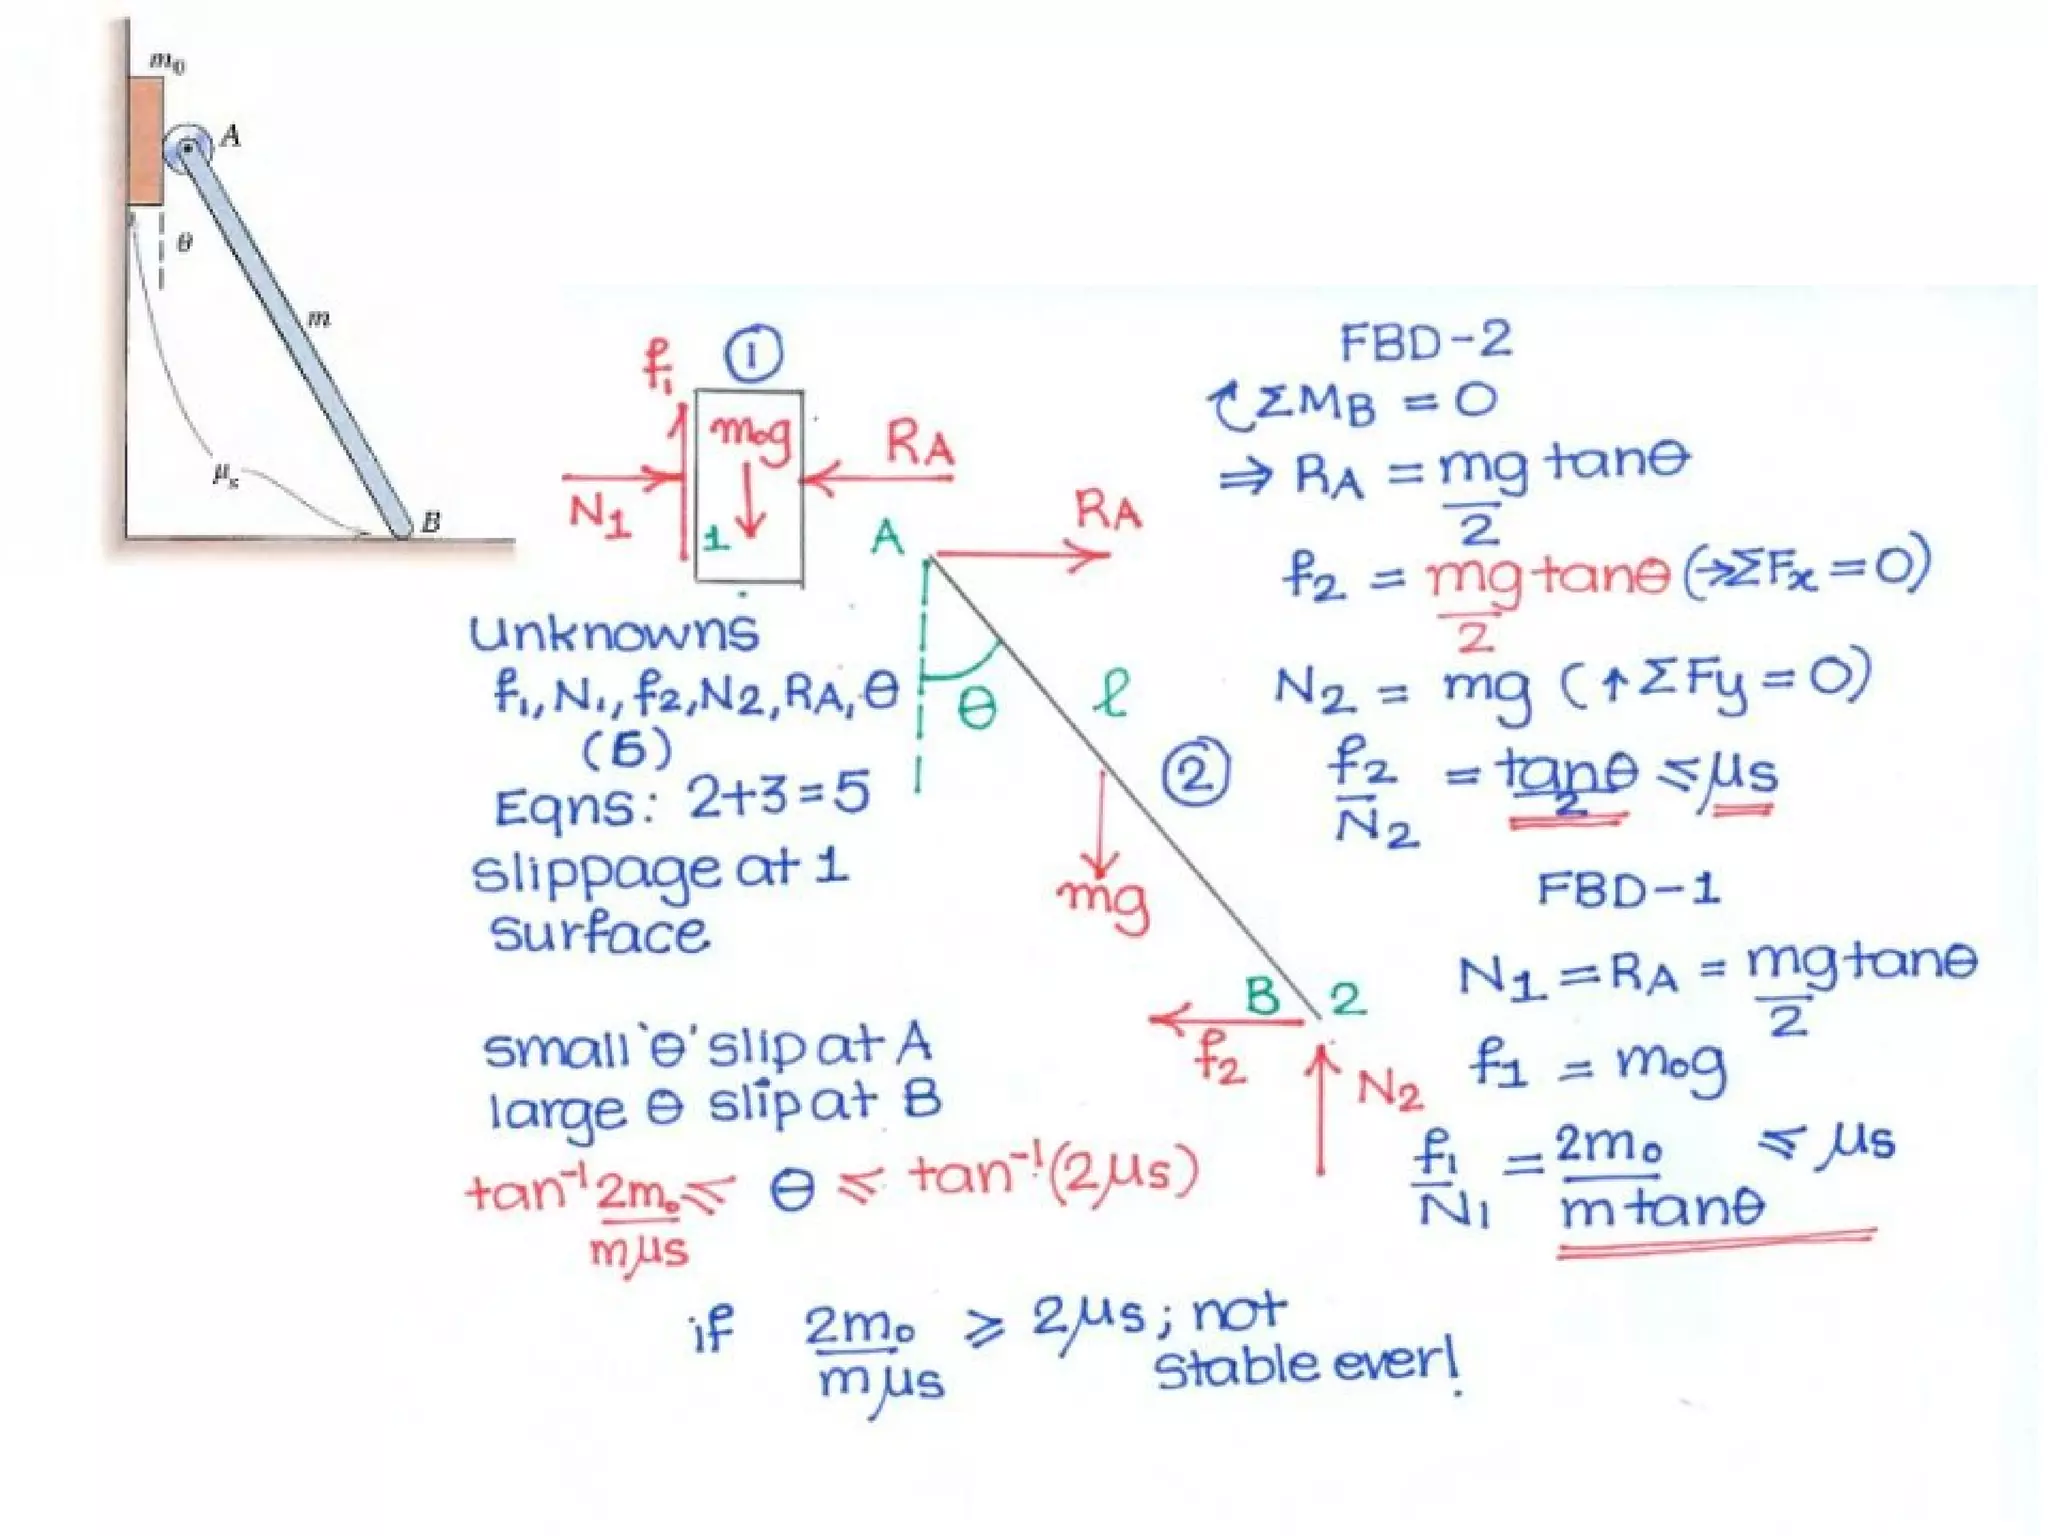 m₀
A
θ
m
μₛ
B
①
f₁
m₀g
R_A
N₁
1
A
R_A
θ
ℓ
②
mg
B 2
f₂
N₂
Unknowns
f₁, N₁, f₂, N₂, R_A, θ
(6)
Eqns: 2+3=5
slippage at 1
surface
small 'θ' slip at A
large θ slip at B
tan⁻¹ 2m₀/mμs ≤ θ ≤ tan⁻¹(2μs)
if 2m₀/mμs ≥ 2μs; not
stable ever!
FBD-2
↻ΣM_B = 0
⇒ R_A = mg/2 tanθ
f₂ = mg/2 tanθ (→ΣFx = 0)
N₂ = mg (↑ΣFy = 0)
f₂/N₂ = tanθ/2 ≤ μs
FBD-1
N₁ = R_A = mg/2 tanθ
f₁ = m₀g
f₁/N₁ = 2m₀/m tanθ ≤ μs